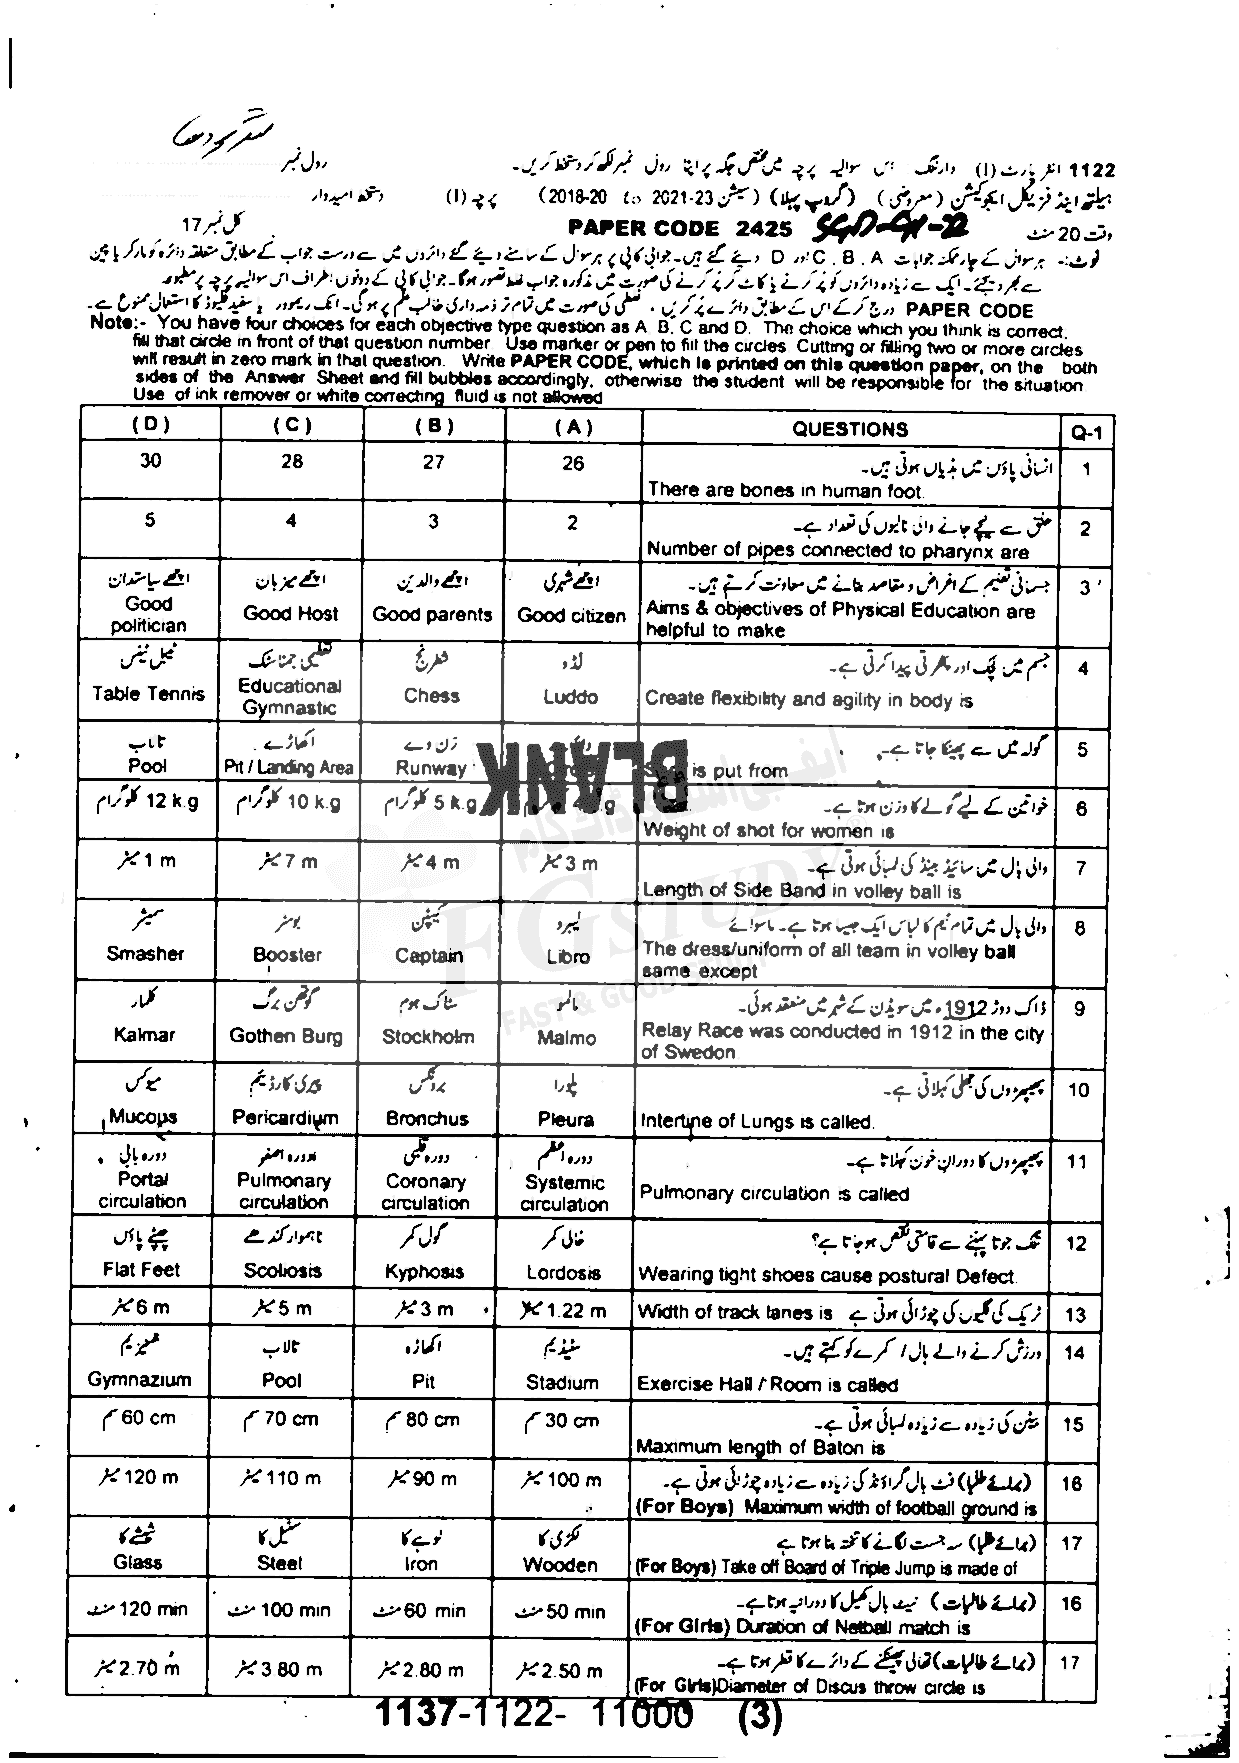 سرگودھا
1122 انٹر پارٹ (I) وارننگ۔ اس سوالیہ پرچہ میں مختص جگہ پر اپنا رول نمبر لکھ کر دستخط کریں۔ رول نمبر
ہیلتھ اینڈ فزیکل ایجوکیشن (معروضی) (گروپ پہلا) (سیشن 2021-23 تا 2018-20) پرچہ (I) دستخط امیدوار
وقت 20 منٹ PAPER CODE 2425 کل نمبر 17
نوٹ:- ہر سوال کے چار ممکنہ جوابات A ، B ، C اور D دیئے گئے ہیں۔ جوابی کاپی پر ہر سوال کے سامنے دیئے گئے دائروں میں سے درست جواب کے مطابق متعلقہ دائرہ کو مارکر یا پین
سے بھر دیجئے۔ ایک سے زیادہ دائروں کو پُر کرنے یا کاٹ کر پُر کرنے کی صورت میں مذکورہ جواب غلط تصور ہوگا۔ جوابی کاپی کے دونوں اطراف اس سوالیہ پرچہ پر مطبوعہ
PAPER CODE درج کر کے اس کے مطابق دائرے پُر کریں، غلطی کی صورت میں تمام تر ذمہ داری طالب علم پر ہوگی۔ انک ریموور یا سفید فلیوڈ کا استعمال ممنوع ہے۔
Note:- You have four choices for each objective type question as A, B, C and D. The choice which you think is correct,
fill that circle in front of that question number. Use marker or pen to fill the circles Cutting or filling two or more circles
will result in zero mark in that question. Write PAPER CODE, which is printed on this question paper, on the both
sides of the Answer Sheet and fill bubbles accordingly, otherwise the student will be responsible for the situation
Use of ink remover or white correcting fluid is not allowed
(D) (C) (B) (A) QUESTIONS Q-1
30 28 27 26 انسانی پاؤں میں ہڈیاں ہوتی ہیں۔ 1
There are bones in human foot.
5 4 3 2 حلق سے نیچے جانے والی نالیوں کی تعداد ہے۔ 2
Number of pipes connected to pharynx are
اچھے سیاستدان اچھے میزبان اچھے والدین اچھے شہری جسمانی تعلیم کے اغراض و مقاصد بنانے میں معاونت کرتے ہیں۔ 3
Good politician Good Host Good parents Good citizen Aims & objectives of Physical Education are
helpful to make
ٹیبل ٹینس تعلیمی جمناسٹک شطرنج لڈو جسم میں لچک اور پھرتی پیدا کرتی ہے۔ 4
Table Tennis Educational Gymnastic Chess Luddo Create flexibility and agility in body is
تالاب اکھاڑے رن وے گولہ میں سے پھینکا جاتا ہے۔ 5
Pool Pit / Landing Area Runway is put from
BLANK
12 k.g کلوگرام 10 k.g کلوگرام 5 k.g کلوگرام خواتین کے لیے گولے کا وزن ہوتا ہے۔ 6
Weight of shot for women is
1 m میٹر 7 m میٹر 4 m میٹر 3 m میٹر والی بال میں سائیڈ بینڈ کی لمبائی ہوتی ہے۔ 7
Length of Side Band in volley ball is
سمیشر بوسٹر کیپٹن لیبرو والی بال میں تمام ٹیم کا لباس ایک جیسا ہوتا ہے۔ ماسوائے 8
Smasher Booster Captain Libro The dress/uniform of all team in volley ball
same except
کلمار گوتھن برگ سٹاک ہوم مالمو ڈاک دوڑ 1912ء میں سویڈن کے شہر میں منعقد ہوئی۔ 9
Kalmar Gothen Burg Stockholm Malmo Relay Race was conducted in 1912 in the city
of Swedon
میوکس پیری کارڈیم برونکس پلورا پھیپھڑوں کی جھلی کہلاتی ہے۔ 10
Mucops Pericardium Bronchus Pleura Intertine of Lungs is called.
دورہ بابی دورہ صغیر دورہ قلبی دورہ عظیم پھیپھڑوں کا دوران خون کہلاتا ہے۔ 11
Portal circulation Pulmonary circulation Coronary circulation Systemic circulation Pulmonary circulation is called
چپٹے پاؤں ناہموار کندھے گول کمر خالی کمر تنگ جوتا پہننے سے قامتی نقص ہو جاتا ہے؟ 12
Flat Feet Scoliosis Kyphosis Lordosis Wearing tight shoes cause postural Defect.
6 m میٹر 5 m میٹر 3 m میٹر 1.22 m میٹر Width of track lanes is ٹریک کی گلیوں کی چوڑائی ہوتی ہے 13
جمنیزیم تالاب اکھاڑہ سٹیڈیم ورزش کرنے والے ہال / کمرے کو کہتے ہیں۔ 14
Gymnazium Pool Pit Stadium Exercise Hall / Room is called
60 cm سم 70 cm سم 80 cm سم 30 cm سم بیٹن کی زیادہ سے زیادہ لمبائی ہوتی ہے۔ 15
Maximum length of Baton is
120 m میٹر 110 m میٹر 90 m میٹر 100 m میٹر (برائے طلبا) فٹ بال گراؤنڈ کی زیادہ سے زیادہ چوڑائی ہوتی ہے۔ 16
(For Boys) Maximum width of football ground is
شیشے کا سٹیل کا لوہے کا لکڑی کا (برائے طلبا) سہ جست لگانے کا تختہ بنا ہوتا ہے 17
Glass Steel Iron Wooden (For Boys) Take off Board of Triple Jump is made of
120 min منٹ 100 min منٹ 60 min منٹ 50 min منٹ (برائے طالبات) نیٹ بال کھیل کا دورانیہ ہوتا ہے۔ 16
(For Girls) Duration of Netball match is
2.70 m میٹر 3.80 m میٹر 2.80 m میٹر 2.50 m میٹر (برائے طالبات) تھالی پھینکنے کے دائرے کا قطر ہوتا ہے۔ 17
(For Girls)Diameter of Discus throw circle is
1137-1122- 11000 (3)